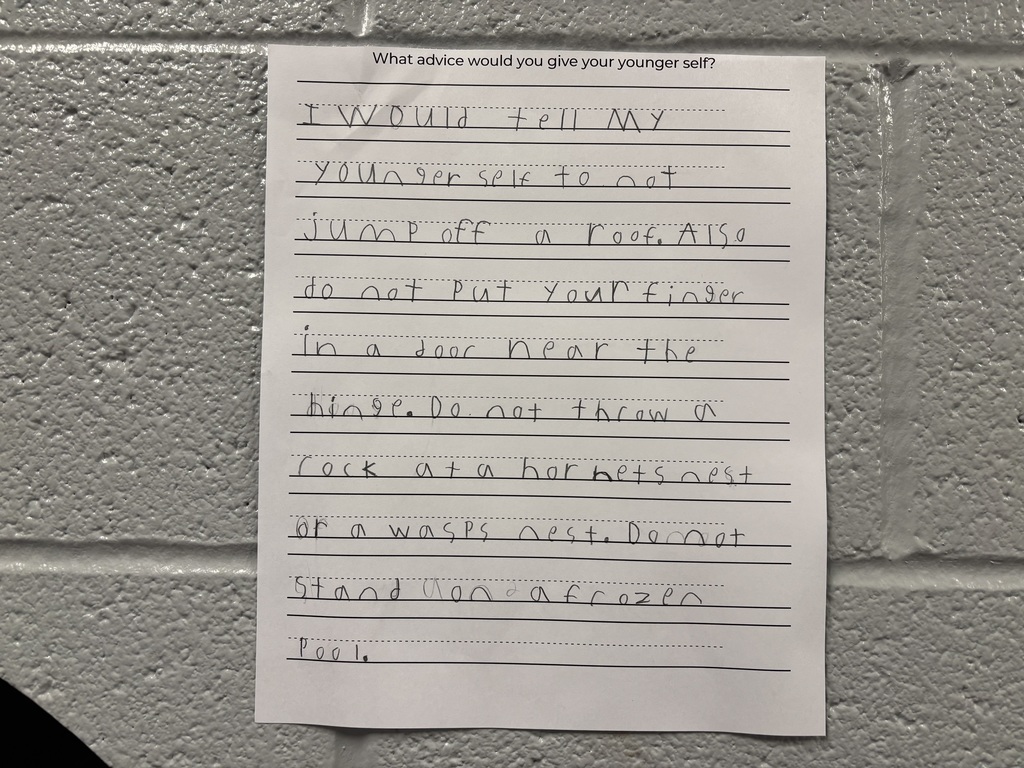 What advice would you give your younger self?
I would tell my
younger self to not
jump off a roof. Also
do not put your finger
in a door near the
hinge. Do not throw a
rock at a hornets nest
or a wasps nest. Do not
stand on a frozen
Pool.